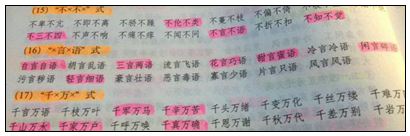 (15) “不×不×”式
不卑不亢 不即不离 不骄不躁 不伦不类 不蔓不枝 不偏不倚
不三不四 不声不响 不痛不痒 不闻不问 不言不语 不折不扣 不知不觉
(16) “×言×语”式
自言自语 胡言乱语 三言两语 流言飞语 花言巧语 甜言蜜语 冷言冷语 闲言碎语
污言秽语 轻言细语 豪言壮语 恶言毒语 寡言少语 片言只语 风言风语
(17) “千×万×”式
千言万语 千枝万叶 千军万马 千辛万苦 千头万绪 千变万化 千丝万缕 千难万
千山万水 千家万户 千呼万唤 千真万确 千恩万谢 千秋万代 千差万别